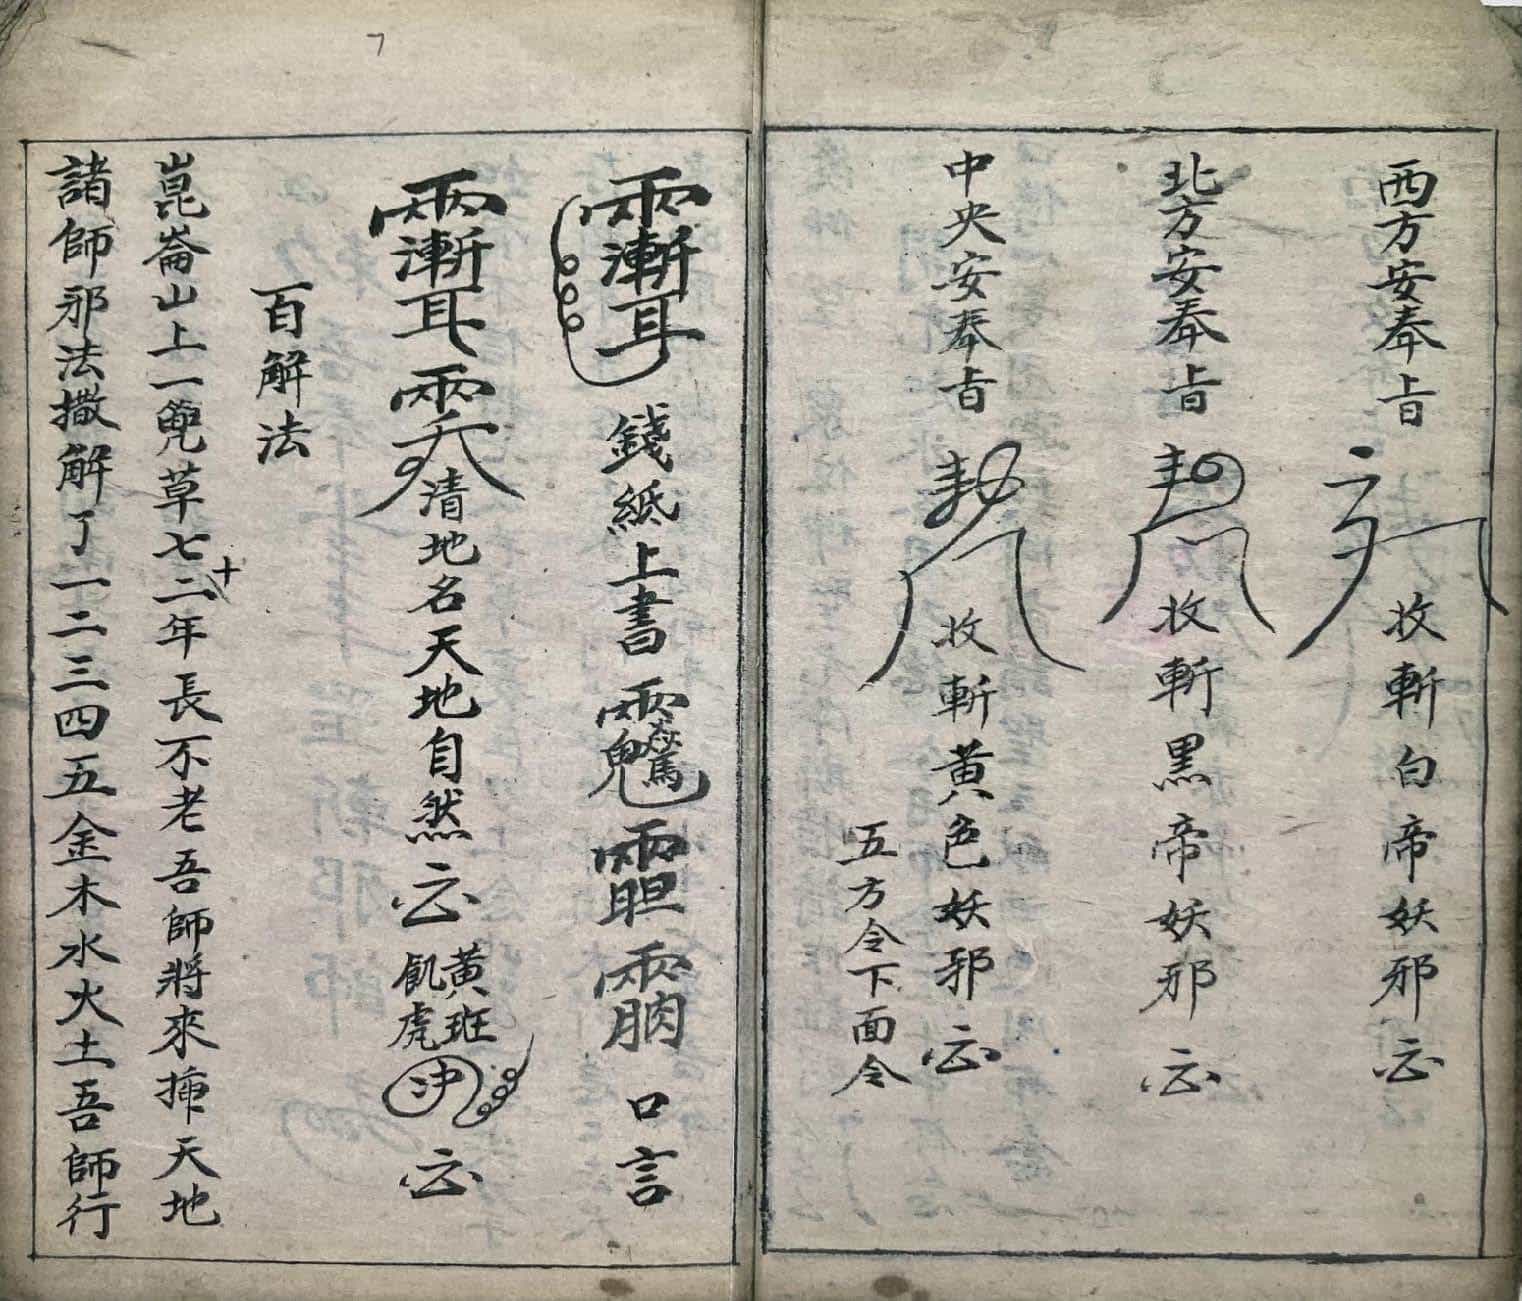 西方安奉旨
收斬白帝妖邪
北方安奉旨
收斬黑帝妖邪
中央安奉旨
收斬黃色妖邪
五方令下面令
錢紙上書
口言
清地名天地自然
黃班
飢虎
百解法
崑崙山上一
草七十二年長不老吾師將來
天地
諸師邪法撒解了一二三四五金木水火土吾師行